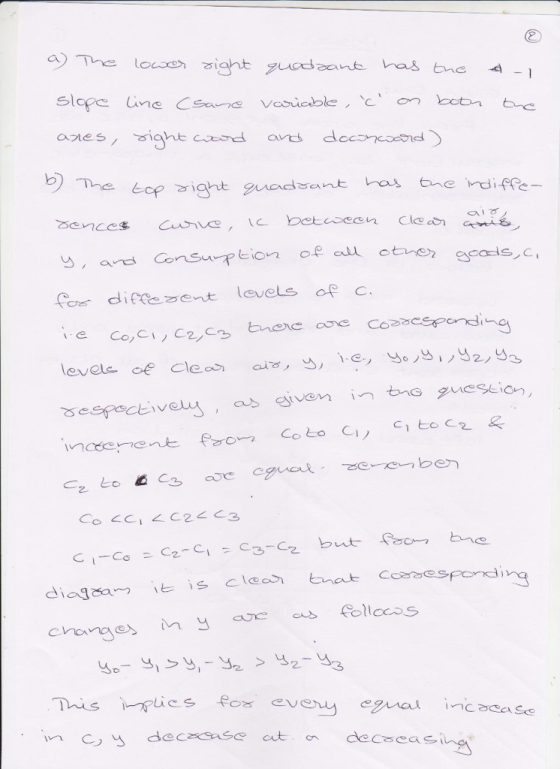 2
a) The lower right quadrant has the -1
slope line (same variable, 'c' on both the
axes, rightward and downward)
b) The top right quadrant has the indiffe-
rences curve, IC between clear air,
y, and consumption of all other goods, c,
for different levels of c.
i.e c0, c1, c2, c3 there are corresponding
levels of clear air, y, i.e., y0, y1, y2, y3
respectively, as given in the question,
increment from c0 to c1, c1 to c2 &
c2 to c3 are equal. remember
c0 < c1 < c2 < c3
c1-c0 = c2-c1 = c3-c2 but from the
diagram it is clear that corresponding
changes in y are as follows
y0 - y1 > y1 - y2 > y2 - y3
This implies for every equal increase
in c, y decrease at a decreasing